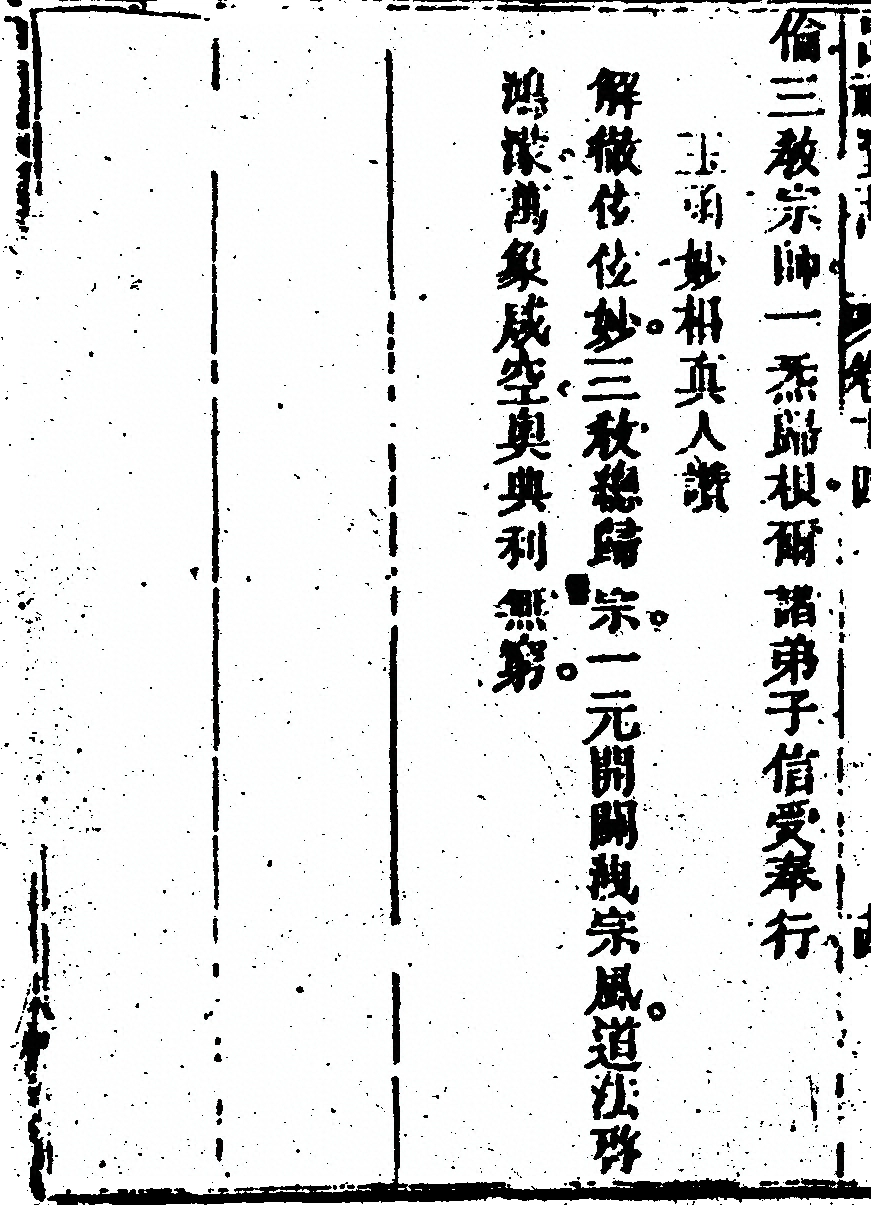 倫三教宗師一炁歸根爾諸弟子信受奉行
妙相真人讚
解徹伭伭妙三教總歸宗一元開闢洩宗風道法啓
鴻濛萬象咸空奧典利無窮